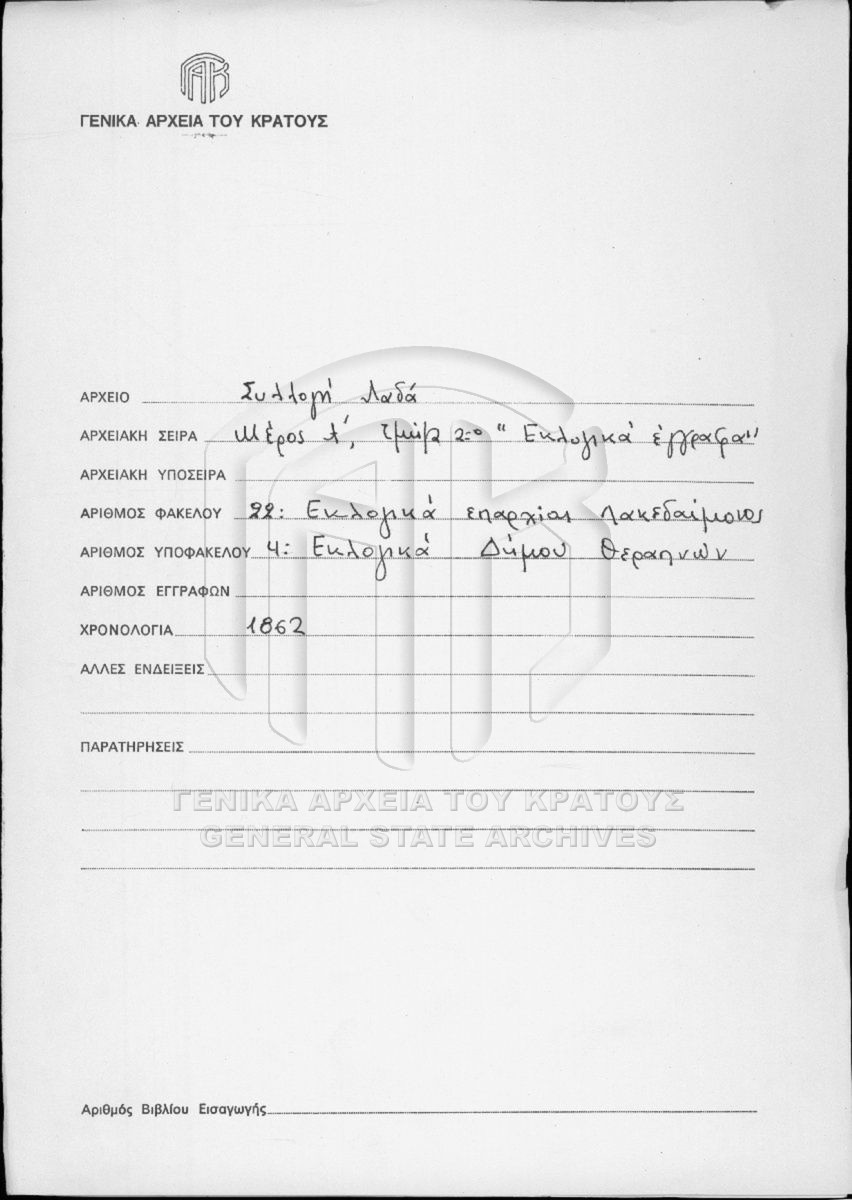 ΓΑΚ
ΓΕΝΙΚΑ ΑΡΧΕΙΑ ΤΟΥ ΚΡΑΤΟΥΣ
ΑΡΧΕΙΟ Συλλογή Λαδά
ΑΡΧΕΙΑΚΗ ΣΕΙΡΑ Μέρος Α', τμήμα 2ο "Εκλογικά έγγραφα"
ΑΡΧΕΙΑΚΗ ΥΠΟΣΕΙΡΑ
ΑΡΙΘΜΟΣ ΦΑΚΕΛΟΥ 22: Εκλογικά επαρχίας Λακεδαίμονος
ΑΡΙΘΜΟΣ ΥΠΟΦΑΚΕΛΟΥ 4: Εκλογικά Δήμου Θεραπνών
ΑΡΙΘΜΟΣ ΕΓΓΡΑΦΩΝ
ΧΡΟΝΟΛΟΓΙΑ 1862
ΑΛΛΕΣ ΕΝΔΕΙΞΕΙΣ
ΠΑΡΑΤΗΡΗΣΕΙΣ
ΓΕΝΙΚΑ ΑΡΧΕΙΑ ΤΟΥ ΚΡΑΤΟΥΣ
GENERAL STATE ARCHIVES
Αριθμός Βιβλίου Εισαγωγής